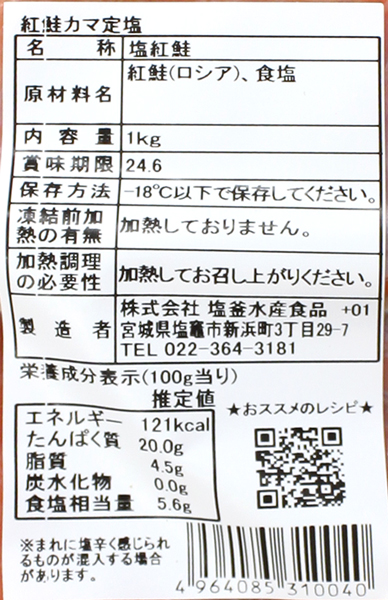 紅鮭カマ定塩
名称 塩紅鮭
原材料名 紅鮭(ロシア)、食塩
内容量 1kg
賞味期限 24.6
保存方法 -18℃以下で保存してください。
凍結前加熱の有無 加熱しておりません。
加熱調理の必要性 加熱してお召し上がりください。
製造者 株式会社 塩釜水産食品 +01
宮城県塩竈市新浜町3丁目29-7
TEL 022-364-3181
栄養成分表示(100g当り)
推定値
エネルギー 121kcal
たんぱく質 20.0g
脂質 4.5g
炭水化物 0.0g
食塩相当量 5.6g
★おススメのレシピ★
※まれに塩辛く感じられ
るものが混入する場合
があります。
4964085310040